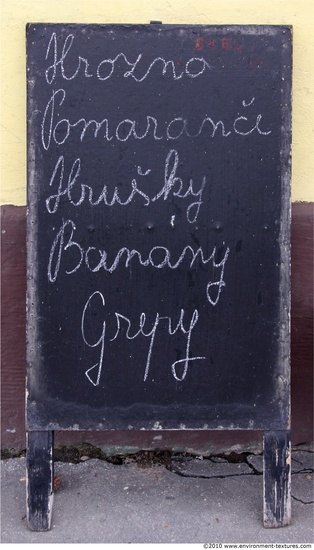 Hrozno
Pomaranči
Hrušky
Banany
Grepy
©2010 www.environment-textures.com